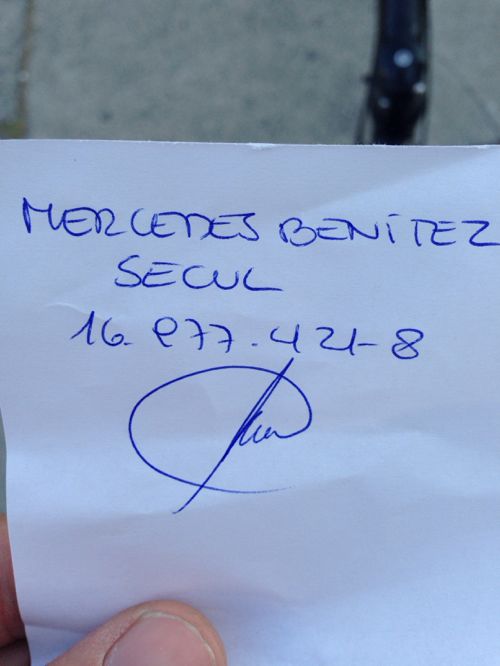 MERCEDES BENÍTEZ
SECUL
16.977.421-8